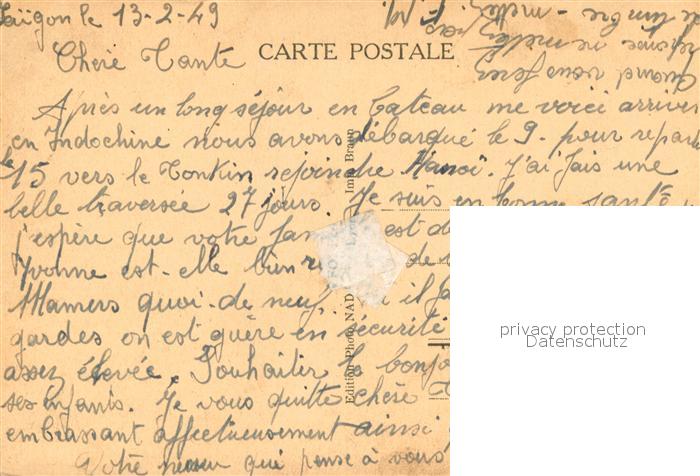 Saïgon le 13-2-49
CARTE POSTALE
Chère Tante
Après un long séjour en bateau me voici arriver
en Indochine nous avons débarqué le 9. pour repar
le 15 vers le Tonkin rejoindre Hanoï. J'ai fais une
belle traversée 27 jours. Je suis en bonne santé
j'espère que votre est
Yvonne est-elle bien de
Mamers quoi-de neuf. il
gardes on est guère en sécurité
assez élevée. Souhaiter le bonjo
ses enfants. Je vous quitte chère
embrassant affectueusement ainsi
Votre neveu qui pense à vous
quand vous ferez
réponse ne mettez pas
de timbre - mettez F.M.
Edition Photo NAD
Imp. Braun
privacy protection
Datenschutz